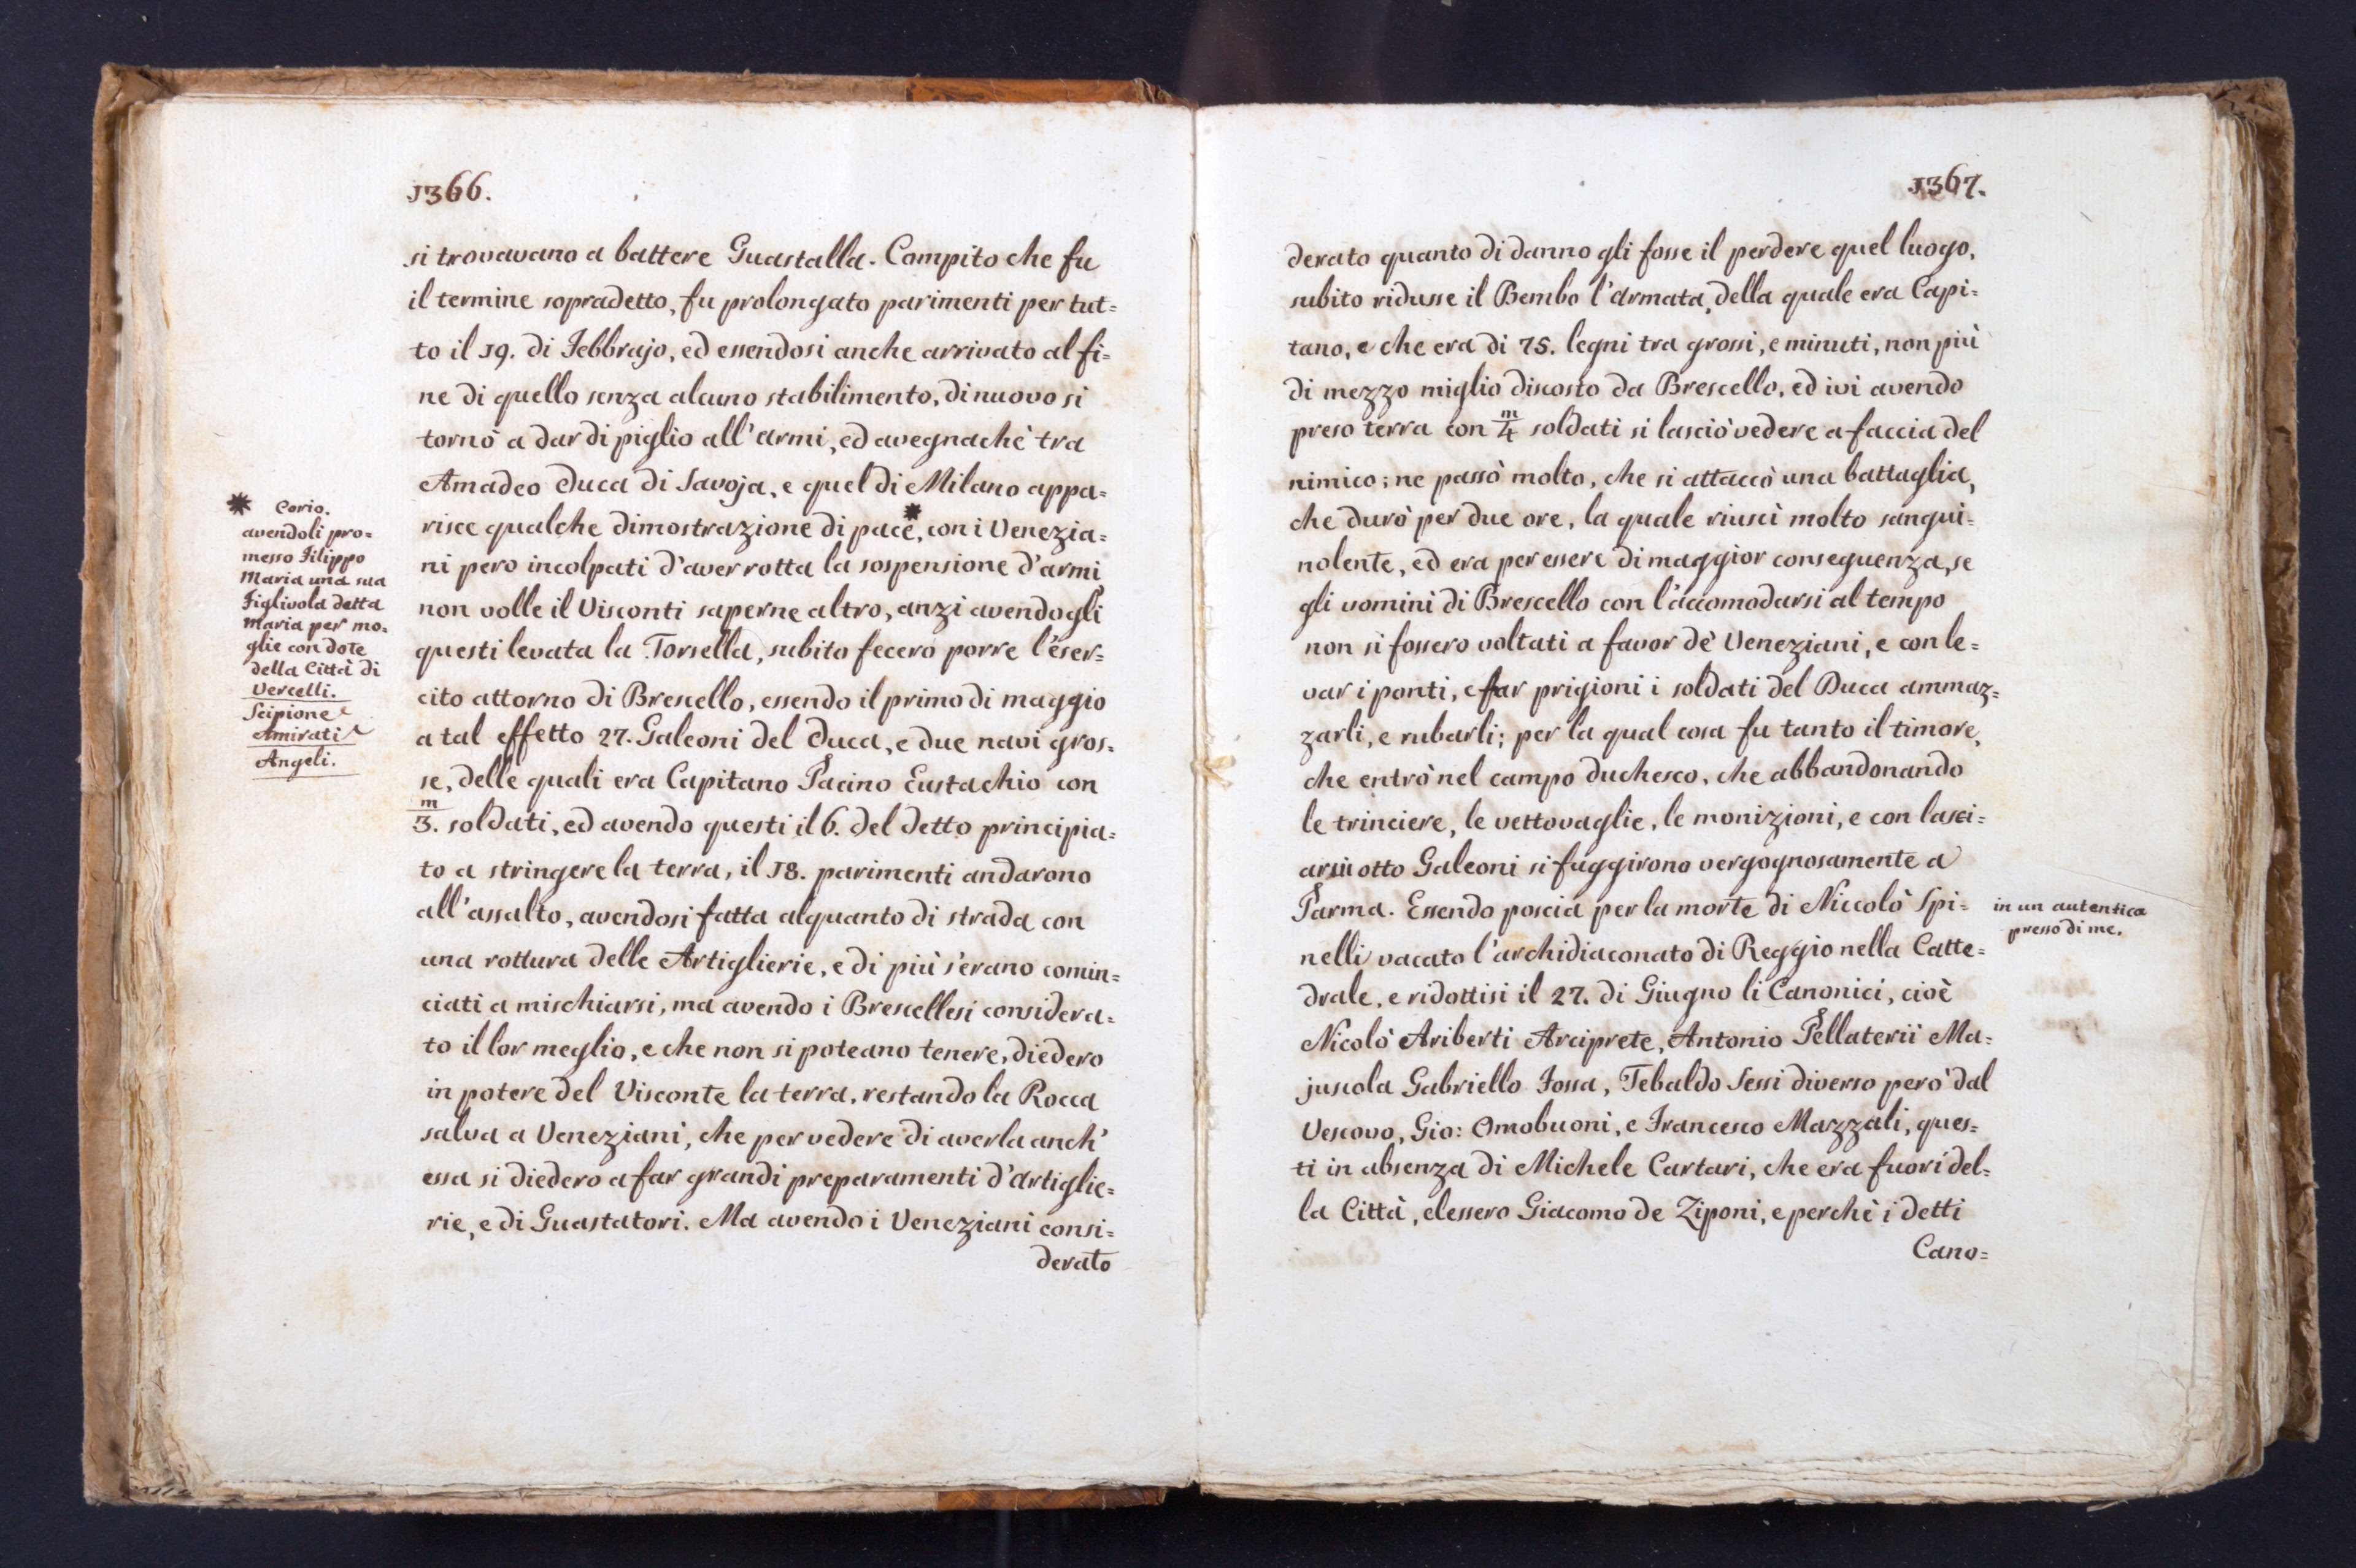 1366.
si trovavano a battere Guastalla. Compito che fu
il termine sopradetto, fu prolongato parimenti per tut=
to il 19. di Febbrajo, ed essendosi anche arrivato al fi=
ne di quello senza alcuno stabilimento, di nuovo si
tornò a dar di piglio all'armi, ed avegnachè tra
Amadeo Duca di Savoja, e quel di Milano appa=
risce qualche dimostrazione di pace*, con i Venezia=
ni pero incolpati d'aver rotta la sospensione d'armi
non volle il Visconti saperne altro, anzi avendogli
questi levata la Torsella, subito fecero porre l'eser=
cito attorno di Brescello, essendo il primo di maggio
a tal effetto 27. Galeoni del Duca, e due navi gros=
se, delle quali era Capitano Pacino Eustachio con
m/3. soldati, ed avendo questi il 6. del detto principia=
to a stringere la terra, il 18. parimenti andarono
all'assalto, avendosi fatta alquanto di strada con
una rottura delle Artiglierie, e di più s'erano comin=
ciati a mischiarsi, ma avendo i Brescellesi considera=
to il lor meglio, e che non si poteano tenere, diedero
in potere del Visconte la terra, restando la Rocca
salva a Veneziani, che per vedere di averla anch'
essa si diedero a far grandi preparamenti d'Artiglie=
rie, e di Guastatori. Ma avendo i Veneziani consi=
derato
* Corio.
avendoli pro=
messo Filippo
Maria una sua
Figlivola detta
Maria per mo=
glie con dote
della Città di
Vercelli.
Scipione
Amirati
Angeli.
1367.
derato quanto di danno gli fosse il perdere quel luogo,
subito ridusse il Bembo l'armata, della quale era Capi=
tano, e che era di 75. legni tra grossi, e minuti, non più
di mezzo miglio discosto da Brescello, ed ivi avendo
preso terra con m/4 soldati si lasciò vedere a faccia del
nimico; ne passò molto, che si attaccò una battaglia,
che durò per due ore, la quale riuscì molto sangui=
nolente, ed era per essere di maggior conseguenza, se
gli uomini di Brescello con l'accomodarsi al tempo
non si fossero voltati a favor de' Veneziani, e con le=
var i ponti, e far prigioni i soldati del Duca ammaz=
zarli, e rubarli; per la qual cosa fu tanto il timore,
che entrò nel campo duchesco, che abbandonando
le trinciere, le vettovaglie, le monizioni, e con lasci=
arvi otto Galeoni si fuggirono vergognosamente a
Parma. Essendo poscia per la morte di Niccolò Spi=
nelli vacato l'archidiaconato di Reggio nella Catte=
drale, e ridottisi il 27. di Giugno li Canonici, cioè
Nicolò Ariberti Arciprete, Antonio Pellaterii Ma=
juscola Gabriello Fossa, Tebaldo Sessi diverso però dal
Vescovo, Gio: Omobuoni, e Francesco Mazzali, ques=
ti in absenza di Michele Cartari, che era fuori del=
la Città, elessero Giacomo de Ziponi, e perchè i detti
Cano=
in un autentico
presso di me.